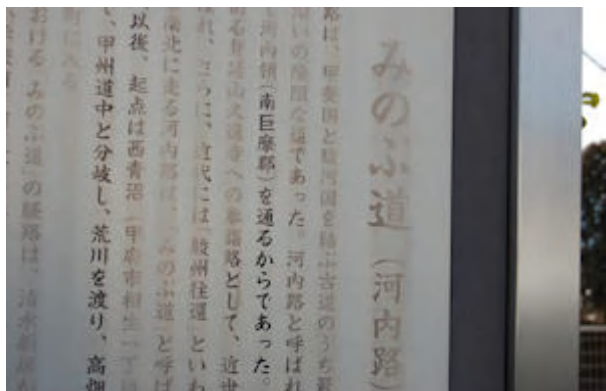 みのぶ道（河内路）
路は、甲斐国と駿河国を結ぶ古道のうち最
沿いの険阻な道であった。河内路と呼ばれ
河内領（南巨摩郡）を通るからであった。
山久遠寺への参詣路として、近世
ばれ、さらに、近代には「駿州往還」といわ
南北に走る河内路は、「みのぶ道」と呼ば
以後、起点は西青沼（甲府市相生一丁目
で、甲州道中と分岐し、荒川を渡り、高畑
町に入る
おける「みのぶ道」の経路は、清水新居